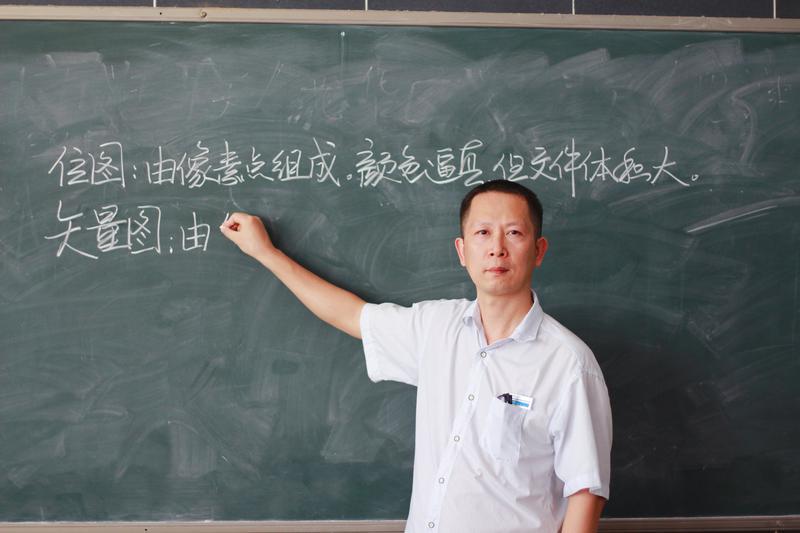 位图：由像素点组成。颜色逼真，但文件体积大。
矢量图：由